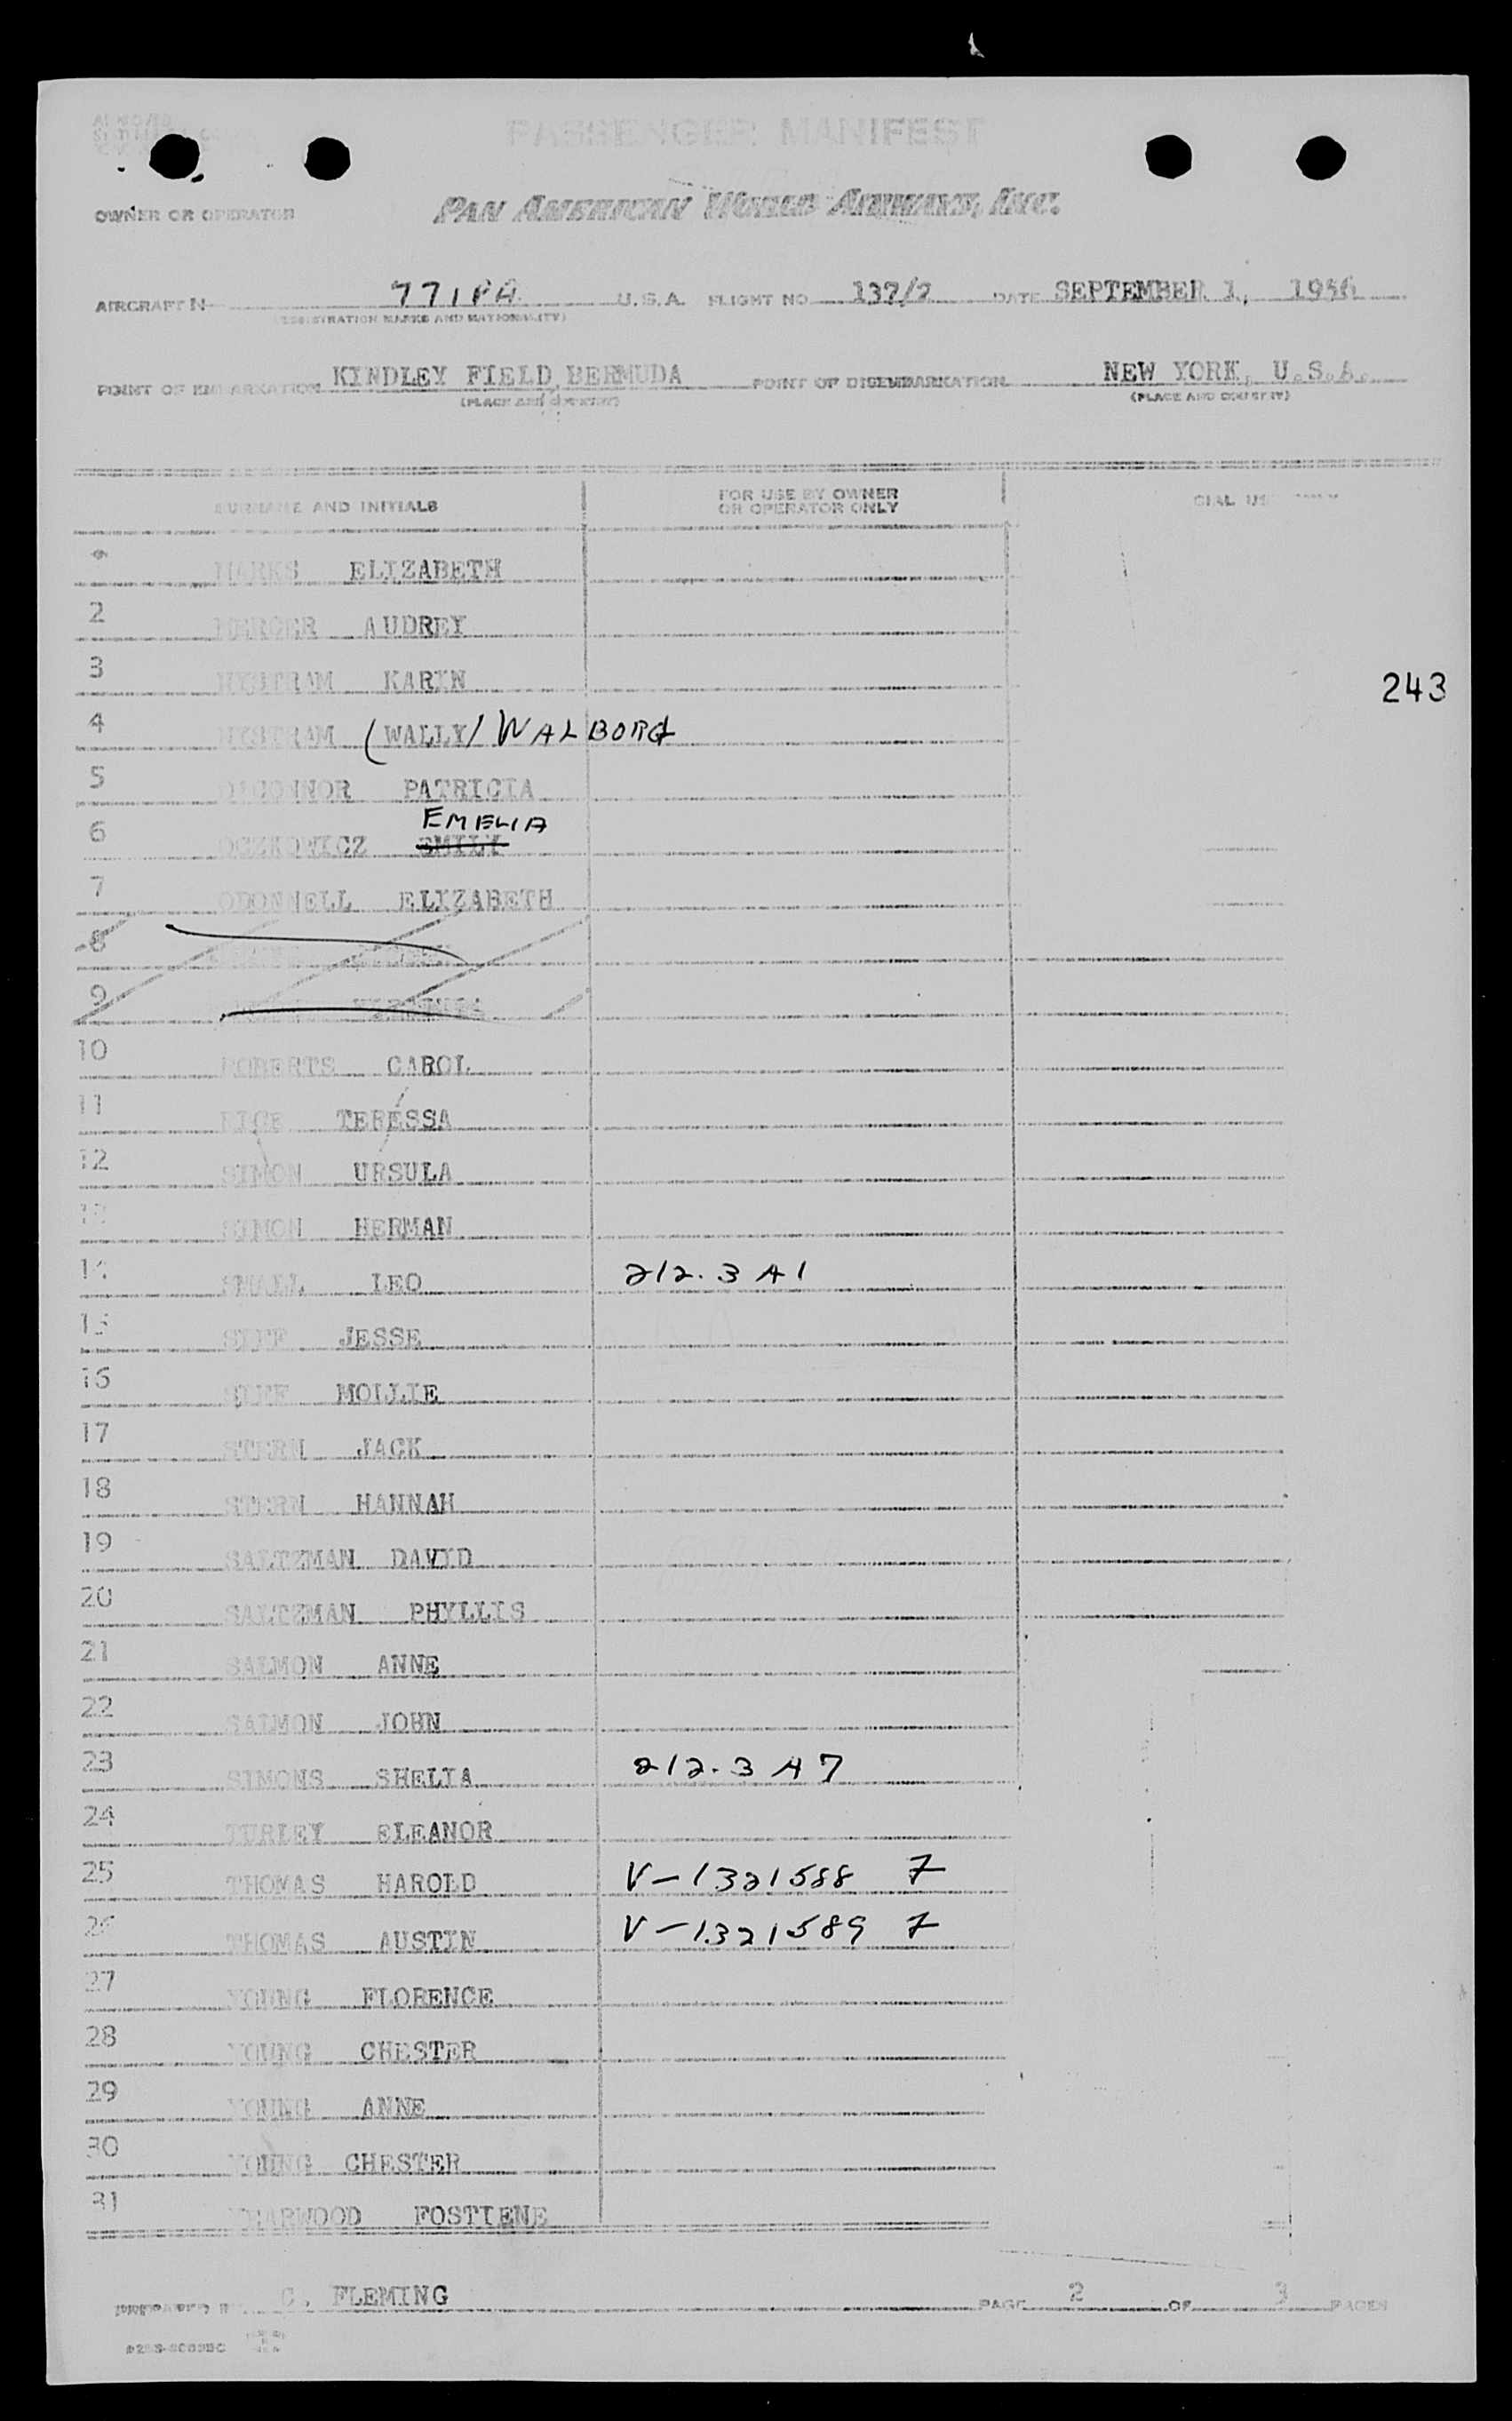 PASSENGER MANIFEST
OWNER OR OPERATOR PAN AMERICAN WORLD AIRWAYS, INC.
AIRCRAFT N 771PA U.S.A. FLIGHT NO 137/2 DATE SEPTEMBER 1, 1956
(REGISTRATION MARKS AND NATIONALITY)
POINT OF EMBARKATION KINDLEY FIELD, BERMUDA POINT OF DISEMBARKATION NEW YORK, U.S.A.
(PLACE AND COUNTRY) (PLACE AND COUNTRY)
SURNAME AND INITIALS FOR USE BY OWNER OR OPERATOR ONLY
MARKS ELIZABETH
2 MERCER AUDREY
3 NYSTRAM KARIN
243
4 NYSTRAM (WALLY/ WALBORG
5 OCONNOR PATRICIA
EMELIA
6 OCZKOWICZ EMILY
7 ODONNELL ELIZABETH
8
9 VIRGINIA
10 ROBERTS CAROL
11 RICE TERESSA
12 SIMON URSULA
13 SIMON HERMAN
14 SMALL LEO 212.3 A1
15 SIFF JESSE
16 SIFF MOLLIE
17 STERN JACK
18 STERN HANNAH
19 SALTZMAN DAVID
20 SALTZMAN PHYLLIS
21 SALMON ANNE
22 SALMON JOHN
23 SIMONS SHELIA 212.3 A7
24 TURLEY ELEANOR
25 THOMAS HAROLD V-1321588 7
26 THOMAS AUSTIN V-1321589 7
27 YOUNG FLORENCE
28 YOUNG CHESTER
29 YOUNG ANNE
30 YOUNG CHESTER
31 YEARWOOD FOSTIENE
PREPARED BY C. FLEMING PAGE 2 OF 3 PAGES